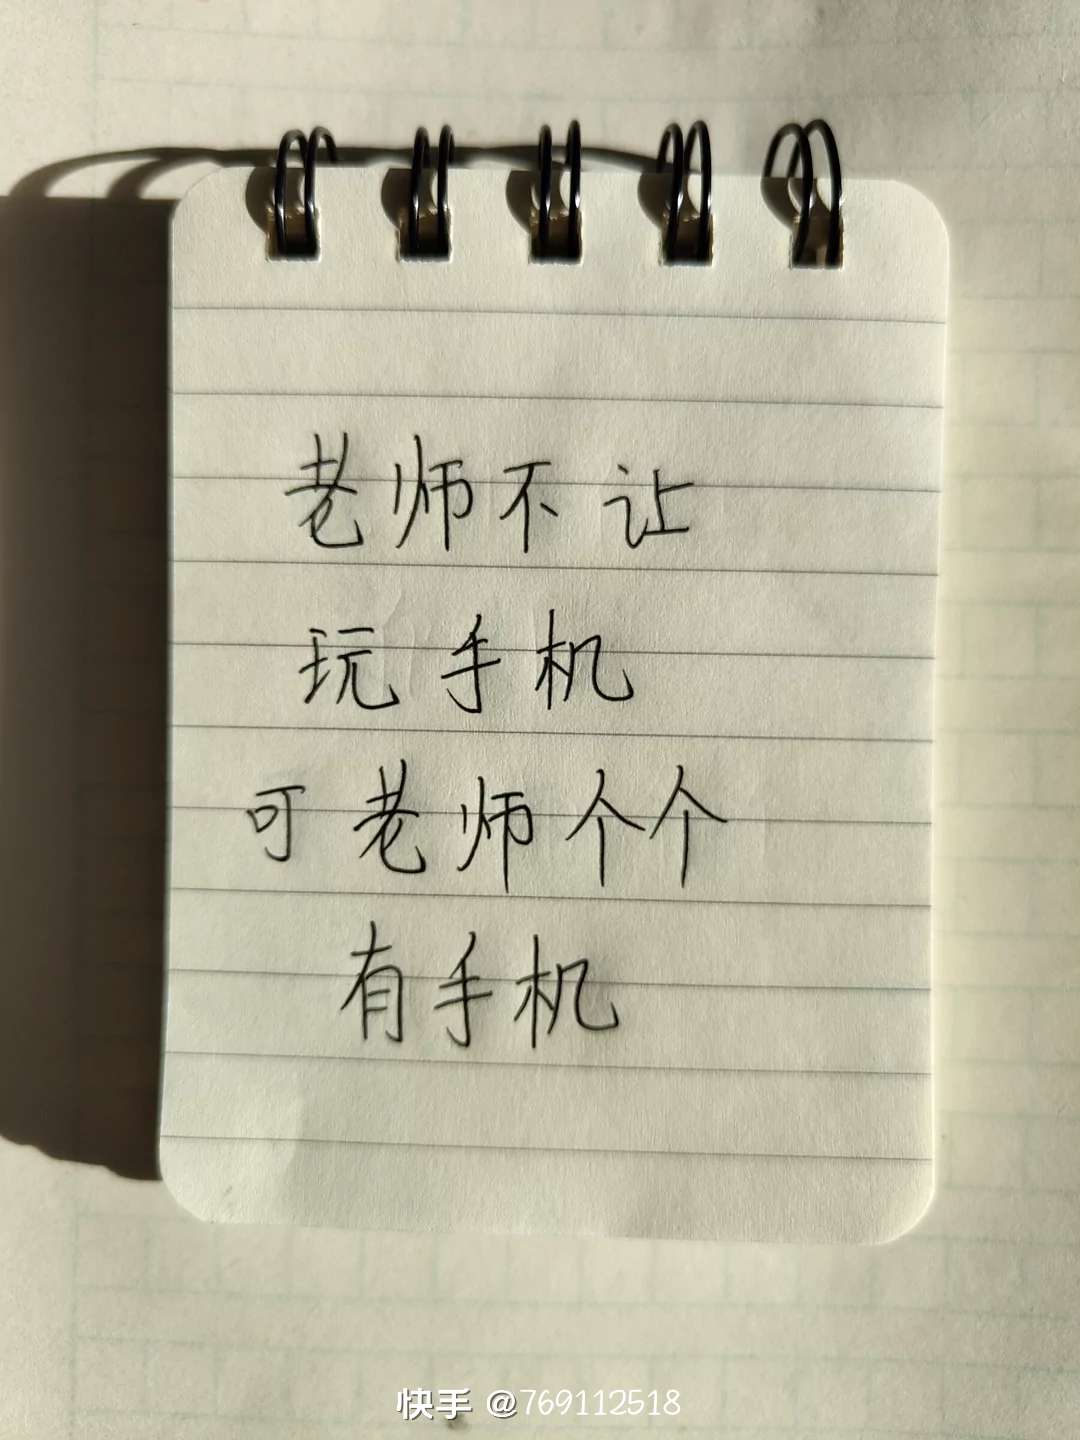 老师不让
玩手机
可老师个个
有手机
快手 @769112518